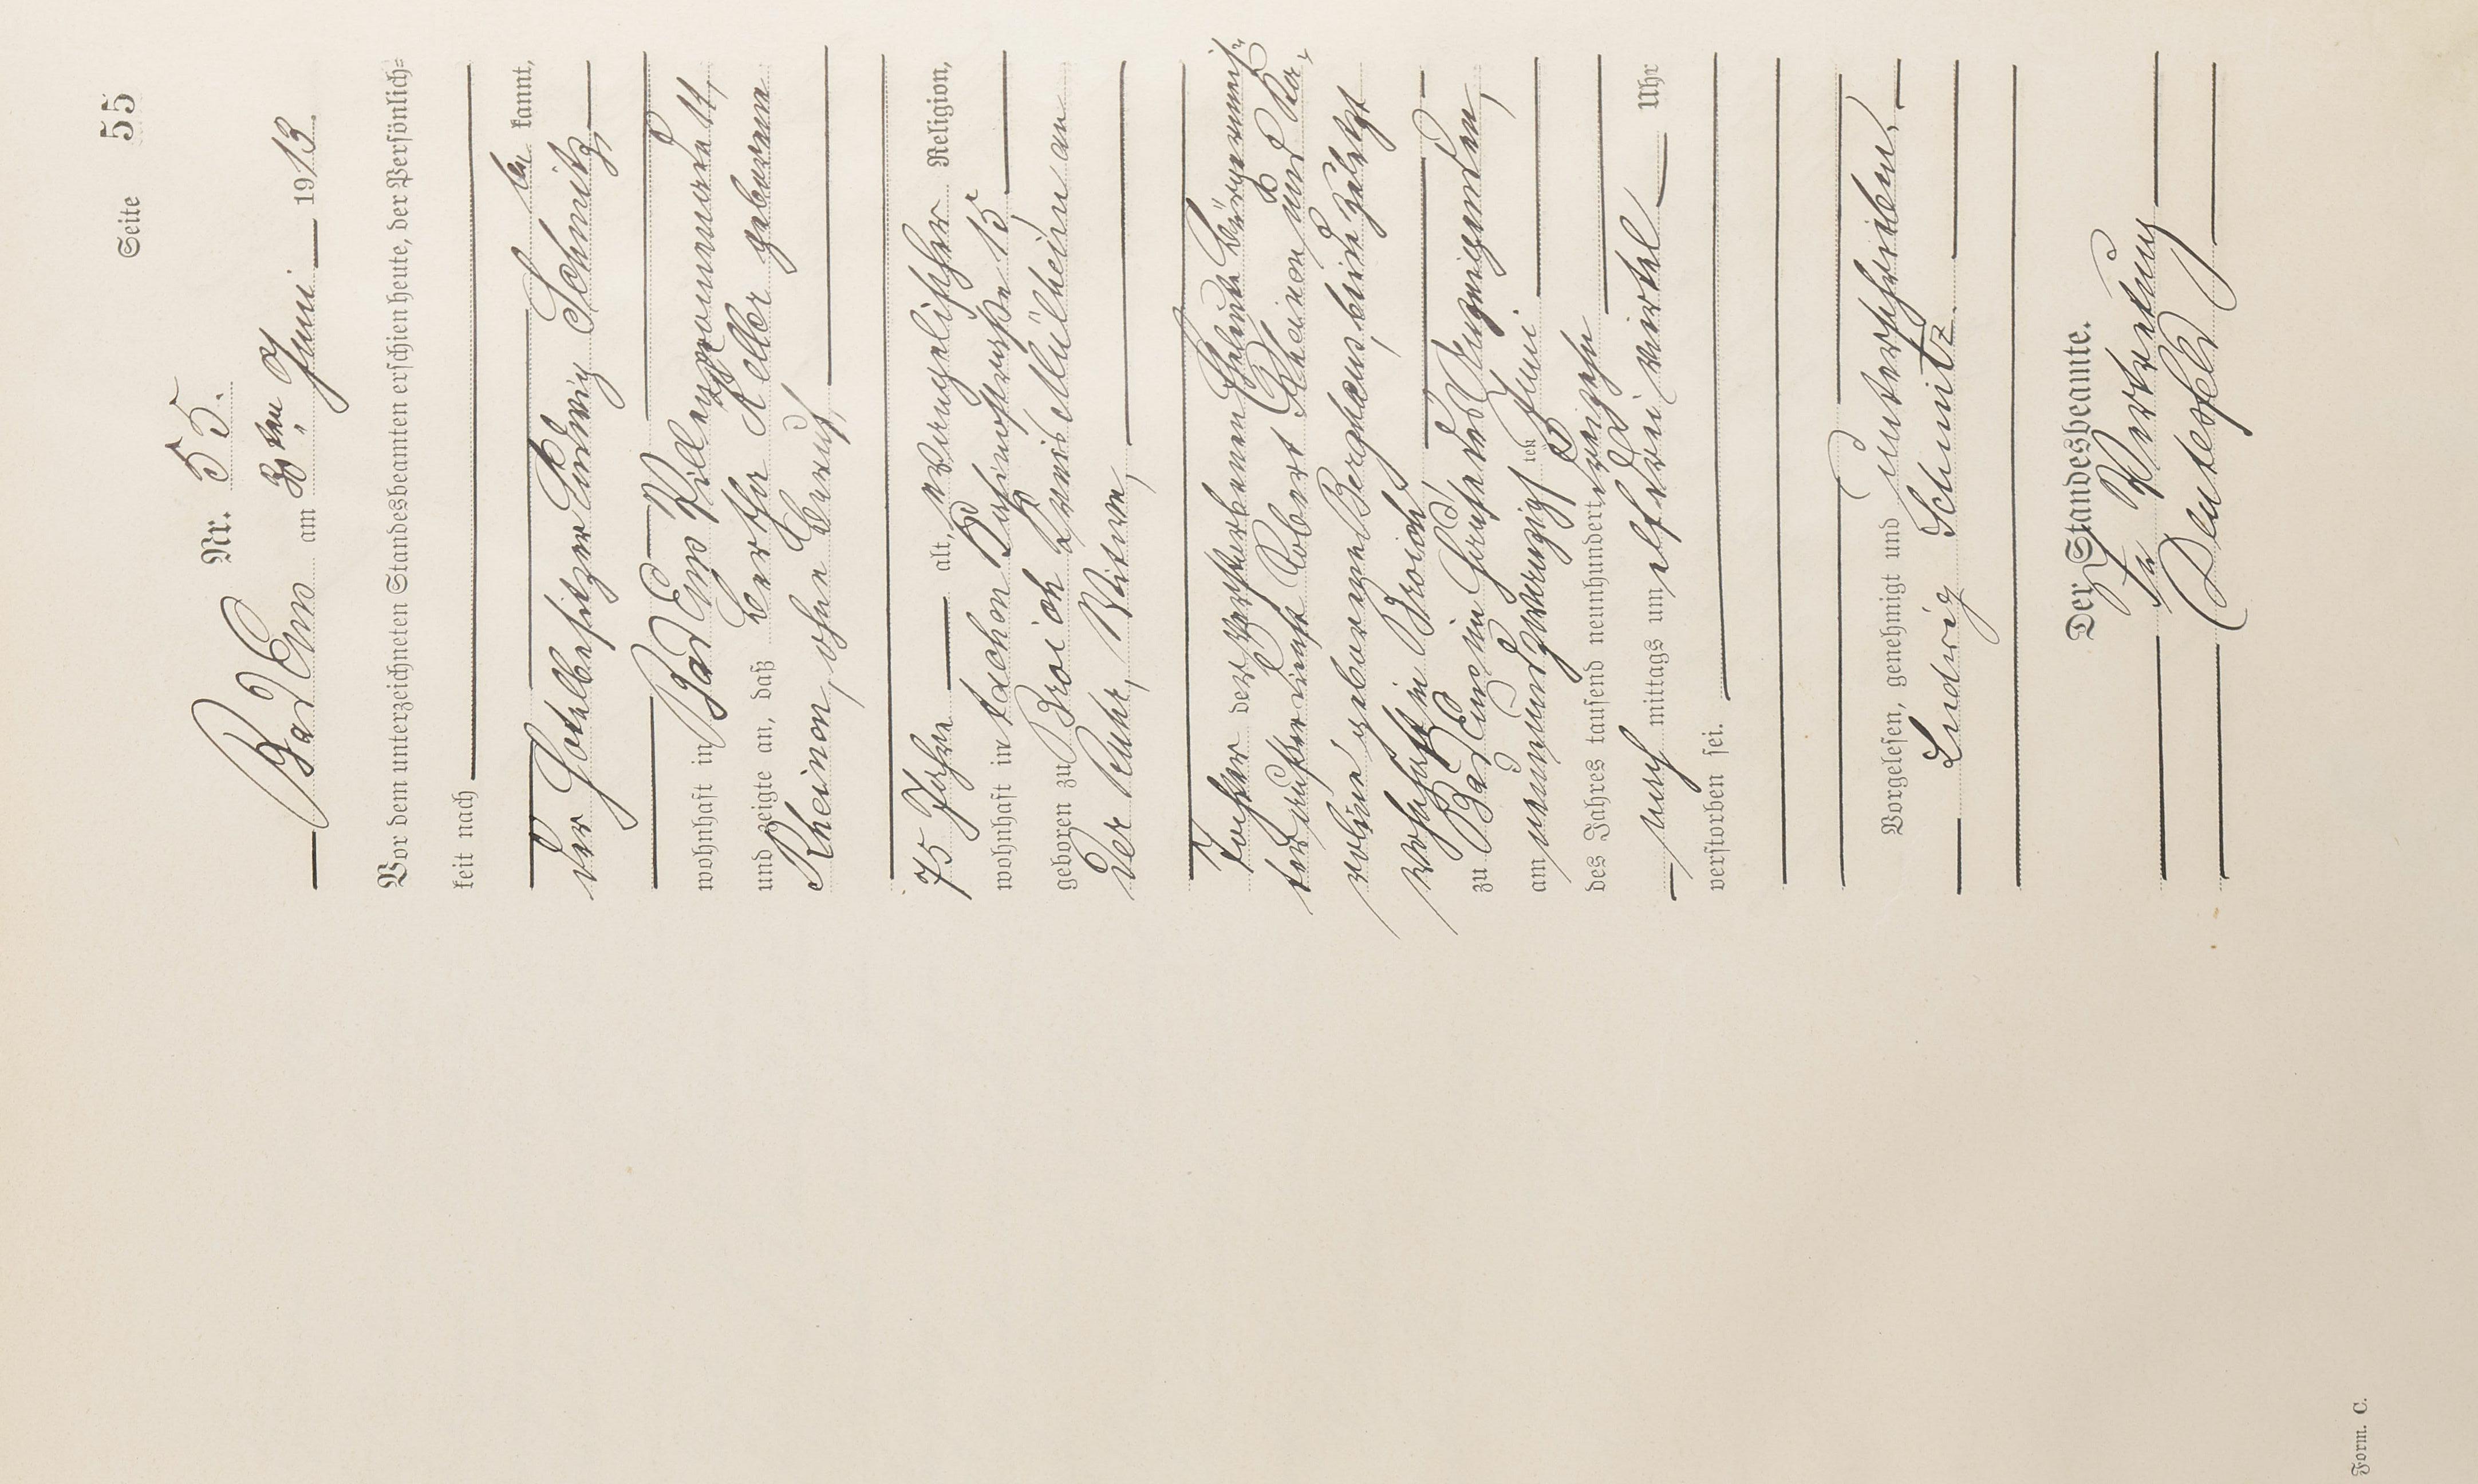 Seite 55
Nr. 55.
Bad Ems am 30ten Juni 1913.
Vor dem unterzeichneten Standesbeamten erschien heute, der Persönlich=
keit nach
be kannt,
der Hotelbesitzer Ludwig Schmitz,
wohnhaft in Bad Ems
und zeigte an, daß Bertha Aller geborene
Rheinen, ohne Beruf,
75 Jahre alt, evangelischer Religion,
wohnhaft in Aachen 15,
geboren zu Broich Kreis Mülheim an
der Ruhr, Witwe,
Tochter der verstorbenen Eheleute Bürgermeis=
ter Robert Rheinen und Ka=
roline geborenen Berghaus, beide zuletzt
wohnhaft in Broich,
zu Bad Ems, im Hause des
am neunundzwanzigsten Juni
des Jahres tausend neunhundert dreizehn
nach mittags um elf drei viertel Uhr
verstorben sei.
Vorgelesen, genehmigt und unterschrieben.
Ludwig Schmitz.
Der Standesbeamte.
In Vertretung
Form. C.